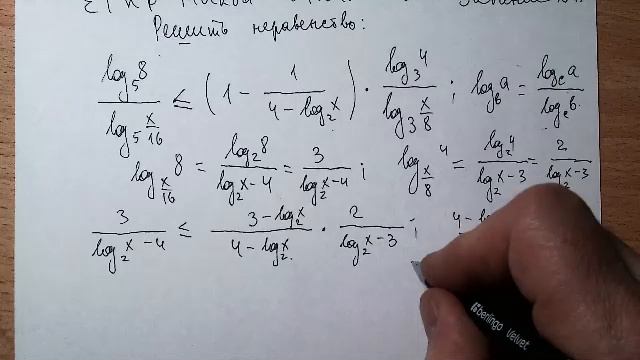 Решить неравенство:
log₅8 / log₅(x/16) ≤ (1 − 1/(4 − log₂x)) · log₃4 / log₃(x/8) ; log_b a = log_c a / log_c b.
log_{x/16} 8 = log₂8 / (log₂x − 4) = 3 / (log₂x − 4) ; log_{x/8} 4 = log₂4 / (log₂x − 3) = 2 / (log₂x − 3)
3 / (log₂x − 4) ≤ (3 − log₂x) / (4 − log₂x) · 2 / (log₂x − 3) ; 4 −
berlingo Velvet